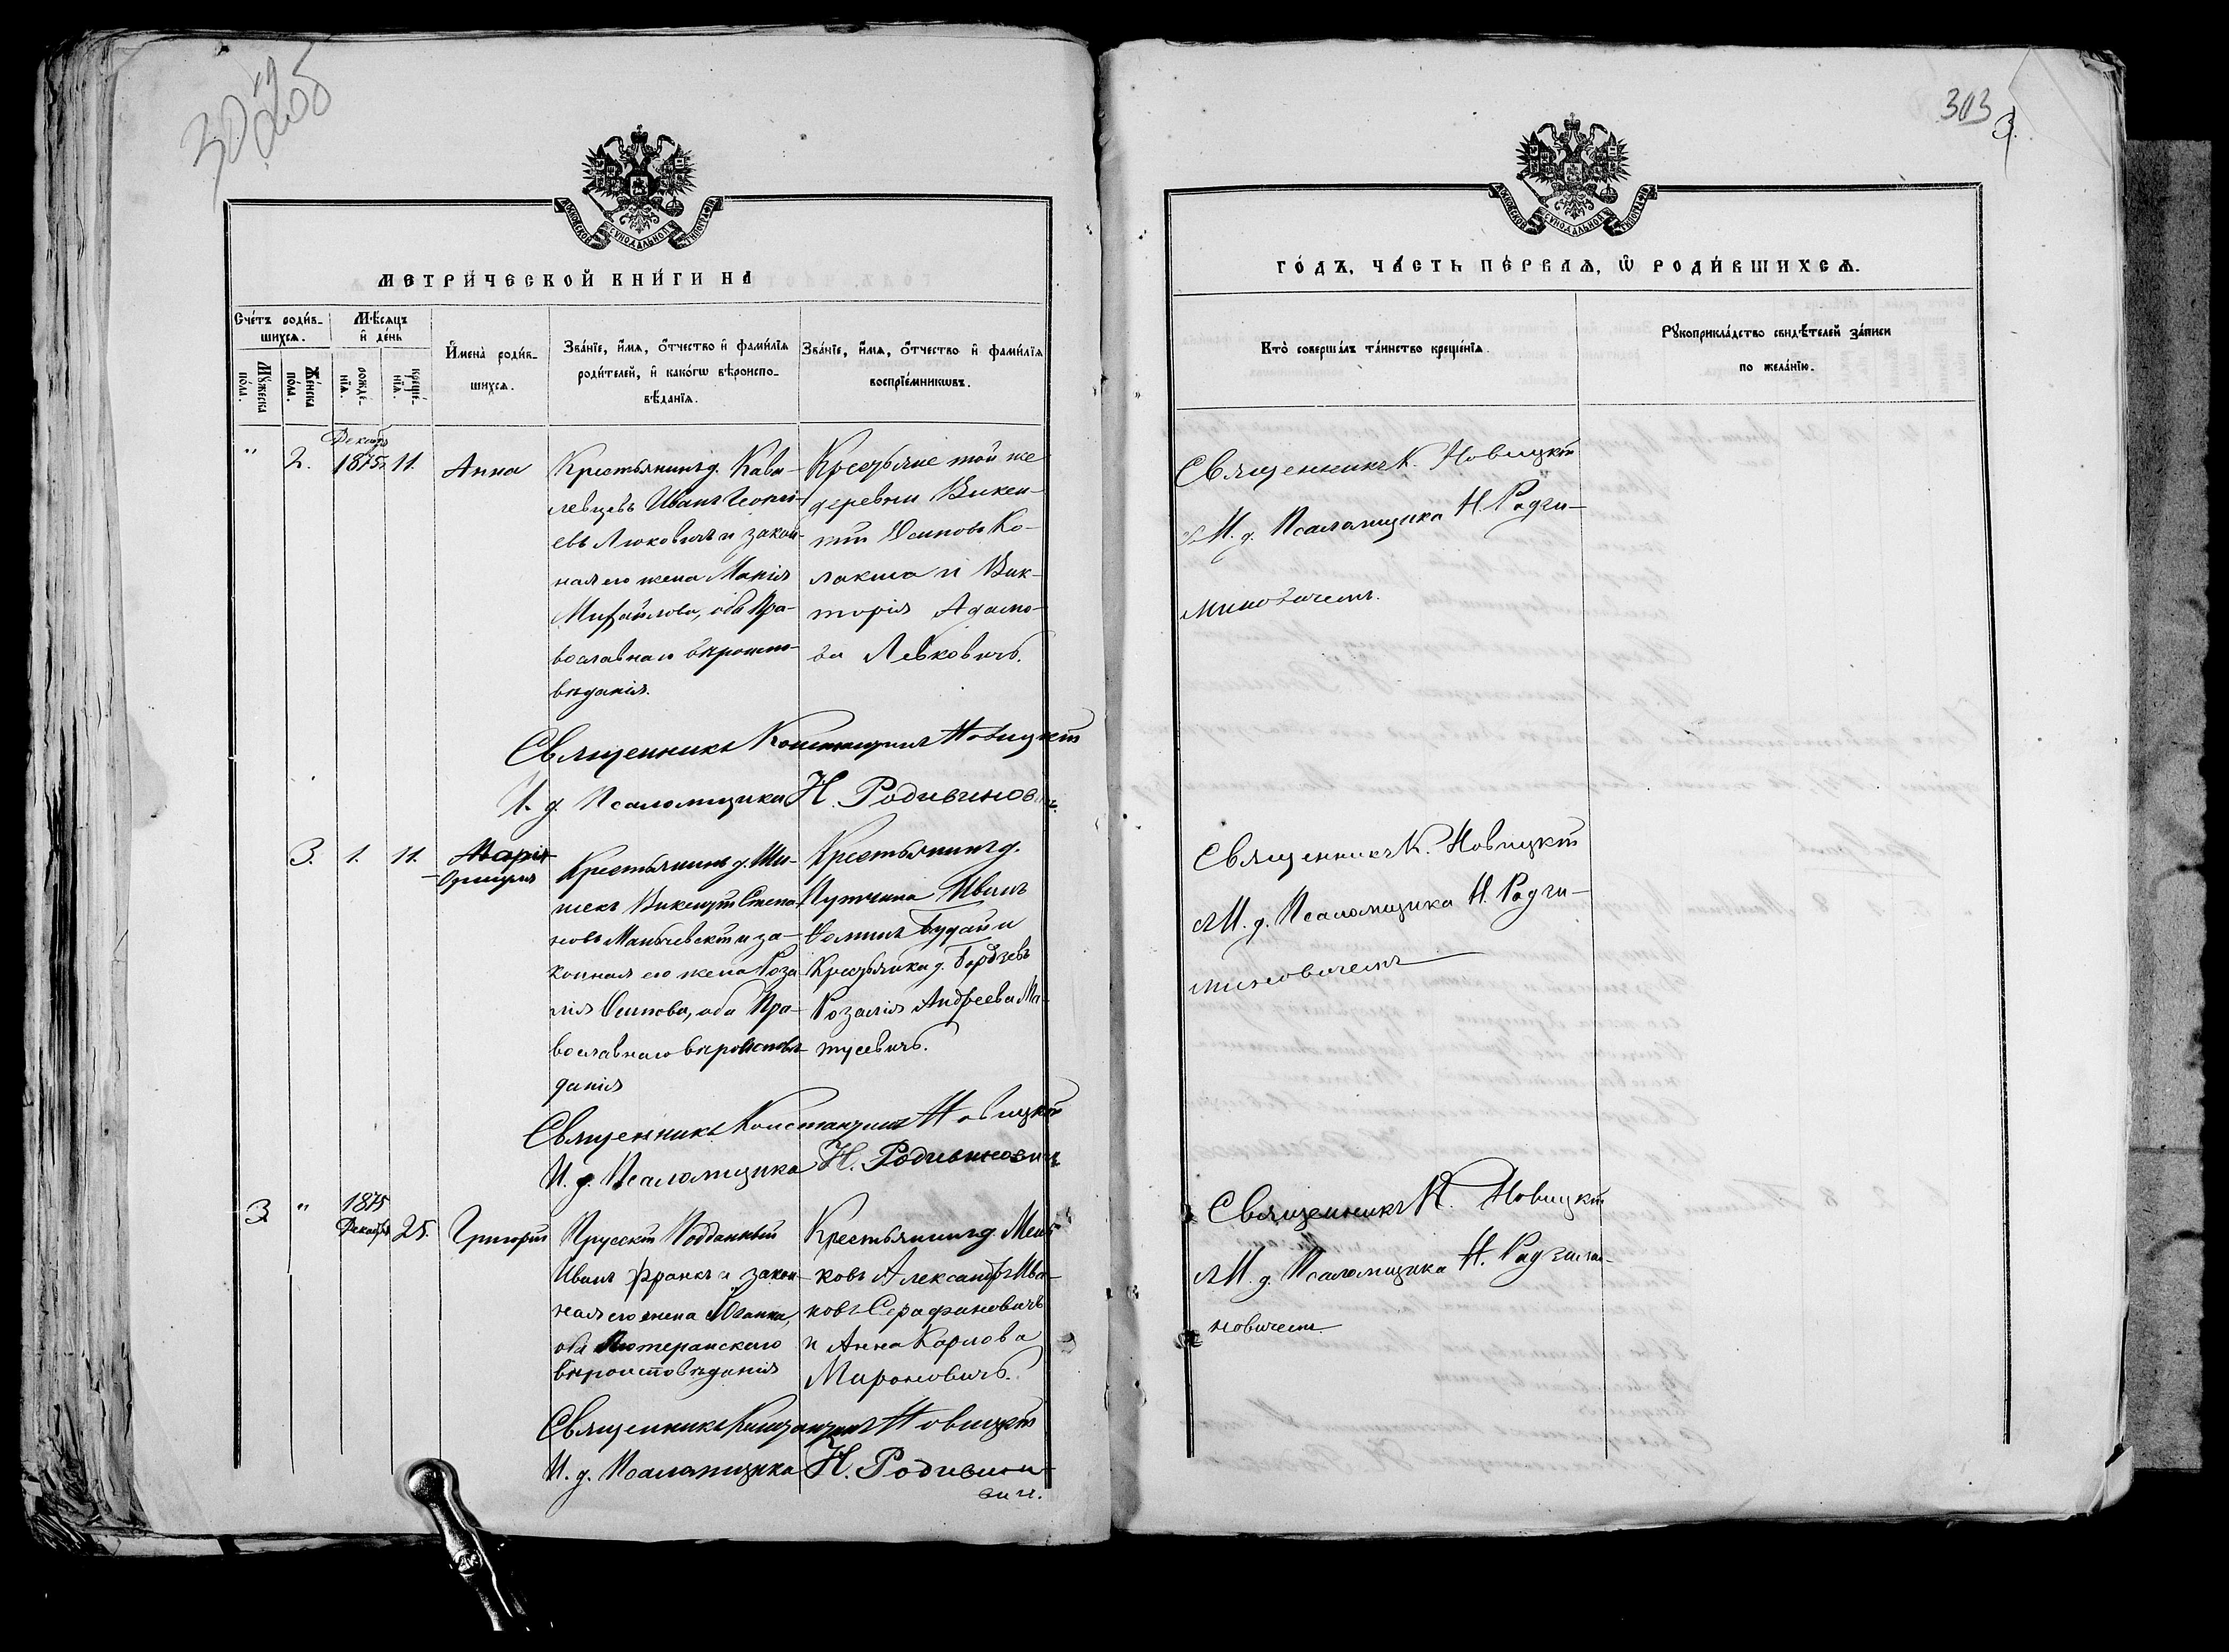 303
3.
МОСКОВСКОЙ СѴНОДАЛЬНОЙ ТИПОГРАФІИ
МЕТРИ́ЧЕСКОЙ КНИ́ГИ НА
Сче́тъ роди́в-
шихсѧ.
Мѣ́сѧцъ
и҆ де́нь
Мꙋ́жеска
по́ла.
Же́нска
по́ла.
рожде́-
нїѧ.
креще́-
нїѧ.
И҆мена̀ роди́в-
шихсѧ.
Зва́нїе, и҆́мѧ, ѻ҆́тчество и҆ фами́лїѧ
роди́телей, и҆ како́гѡ вѣроиспо-
вѣ́данїѧ.
Зва́нїе, и҆́мѧ, ѻ҆́тчество и҆ фами́лїѧ
воспрїе́мникѡвъ.
" 2. Декабр. 1875. 11. Анна
Крестьянинъ д. Кава-
левцевъ Иванъ Георгі-
евъ Люковичъ и закон-
ная его жена Марія
Михайлова, оба Пра-
вославнаго вѣроиспо-
вѣданія.
Крестьяне той же
деревни Викен-
тій Осиповъ Ко-
лакша и Вик-
торія Адамо-
ва Левковичъ.
Священникъ Константинъ Новицкій
И. д. Псаломщика Н.
3. 1. 11. Марія
Крестьянинъ д. Ши-
шекъ Викентій Степа-
новъ и за-
конная его жена Роза
лія Осипова, оба Пра-
вославнаго вѣроисповѣ
данія
Крестьянинъ д.
Иванъ
Будай и
Крестьянка д.
Розалія Андреева Ма-
тусевичъ.
Священникъ Константинъ Новицкій
И. д. Псаломщика Н.
3 " 1875 Декабря 25. Григорій
Прусскій Подданный
Иванъ Франкъ и закон-
ная его жена
оба Лютеранскаго
вѣроисповѣданія
Крестьянинъ д. Мень
ковъ Александръ Ива-
новъ Серафиновичъ
и Анна Карлова
Мироновичъ.
Священникъ Константинъ Новицкій
И. д. Псаломщика Н.
МОСКОВСКОЙ СѴНОДАЛЬНОЙ ТИПОГРАФІИ
ГО́ДЪ, ЧА́СТЬ ПЕ́РВАѦ, Ѽ РОДИ́ВШИХСѦ.
Кто̀ соверша́лъ та́инство креще́нїѧ.
Рꙋкоприкла́дство свидѣ́телей за́писи
по жела́нїю.
Священникъ К. Новицкій
съ И. д. Псаломщика Н. Радзи-
миновичемъ.
Священникъ К. Новицкій
съ И. д. Псаломщика Н. Радзи-
миновичемъ
Священникъ К. Новицкій
съ И. д. Псаломщика Н.
новичемъ.